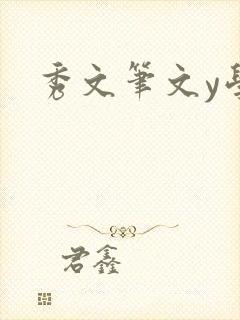 秀文筆文y學
君鑫